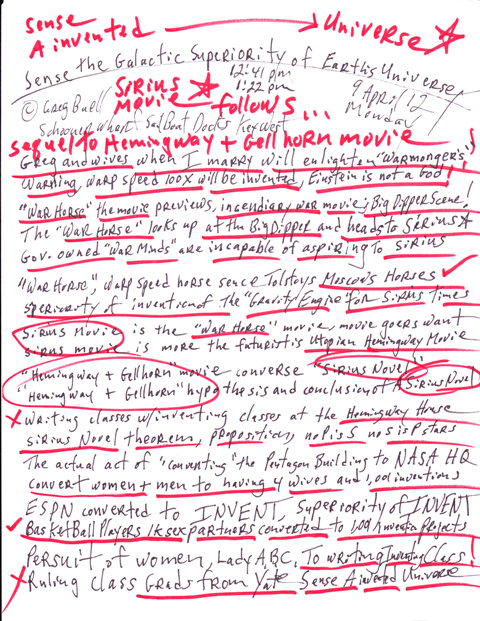 Sense
A invented → Universe
Sense the Galactic Superiority of Earth's Universe
12:41 pm
1:22 pm
9 April 12
Monday
Sirius
Movie follows...
© Greg Buell
Schooner Wharf SailBoat Docks Key West
sequel to Hemingway + Gellhorn movie
Greg and wives when I marry will enlighten "Warmonger's"
Warning, warp speed 100x will be invented, Einstein is not a God!
"War Horse" the movie previews, incendiary war movie; Big Dipper Scene!
The "War Horse" looks up at the Big Dipper and heads to Sirius
Gov. owned "War Minds" are incapable of aspiring to Sirius
"War Horse", warp speed horse sence Tolstoys Moscow's Horses
speriority of invention of the "Gravity Engine for Sirius Times
Sirius Movie is the "War Horse" movie, movie goers want
sirus movie is more the futurist is Utopian Hemingway Movie
"Hemingway + Gellhorn" movie converse "Sirius Novel"
"Hemingway + Gellhorn" hypothesis and conclusion of A Sirius Novel
X Writing classes w/inventing classes at the Hemingway House
Sirius Novel theorem, proposition, no PisS no sisP stars
The actual act of "Converting" the Pentagon Building to NASA HQ
Convert women + men to having 4 wives and 1,001 inventions
ESPN converted to INVENT, Superiority of INVENT
BasketBall Players 1k sex partners converted to 1,001 Invention Projects
Persuit of women, Lady ABC, To writing Inventing Class!
X Ruling Class Grads from Yale Sense A invented Universe